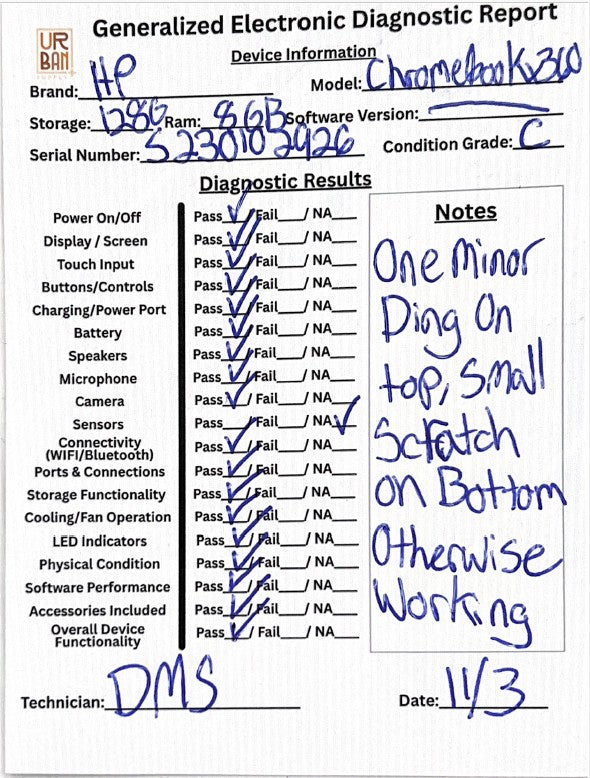 Generalized Electronic Diagnostic Report
UR
BAN
SUPPLY
Device Information
Brand: HP Model: Chromebook x360
Storage: 128G Ram: 8 GB Software Version:
Serial Number: 5230102926 Condition Grade: C
Diagnostic Results
Notes
Power On/Off Pass ✓ / Fail / NA
Display / Screen Pass ✓ / Fail / NA
Touch Input Pass ✓ / Fail / NA
Buttons/Controls Pass ✓ / Fail / NA
Charging/Power Port Pass ✓ / Fail / NA
Battery Pass ✓ / Fail / NA
Speakers Pass ✓ / Fail / NA
Microphone Pass ✓ / Fail / NA
Camera Pass ✓ / Fail / NA
Sensors Pass / Fail / NA ✓
Connectivity
(WIFI/Bluetooth) Pass ✓ / Fail / NA
Ports & Connections Pass ✓ / Fail / NA
Storage Functionality Pass ✓ / Fail / NA
Cooling/Fan Operation Pass ✓ / Fail / NA
LED Indicators Pass ✓ / Fail / NA
Physical Condition Pass ✓ / Fail / NA
Software Performance Pass ✓ / Fail / NA
Accessories Included Pass ✓ / Fail / NA
Overall Device
Functionality Pass ✓ / Fail / NA
One Minor
Ding On
top, Small
Scratch
on Bottom
Otherwise
Working
Technician: DMS Date: 11/3